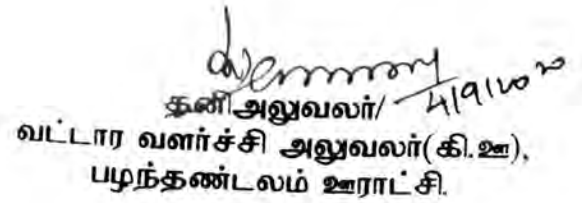 4/9/2020
தனி அலுவலர்/
வட்டார வளர்ச்சி அலுவலர்(கி.ஊ),
பழந்தண்டலம் ஊராட்சி.